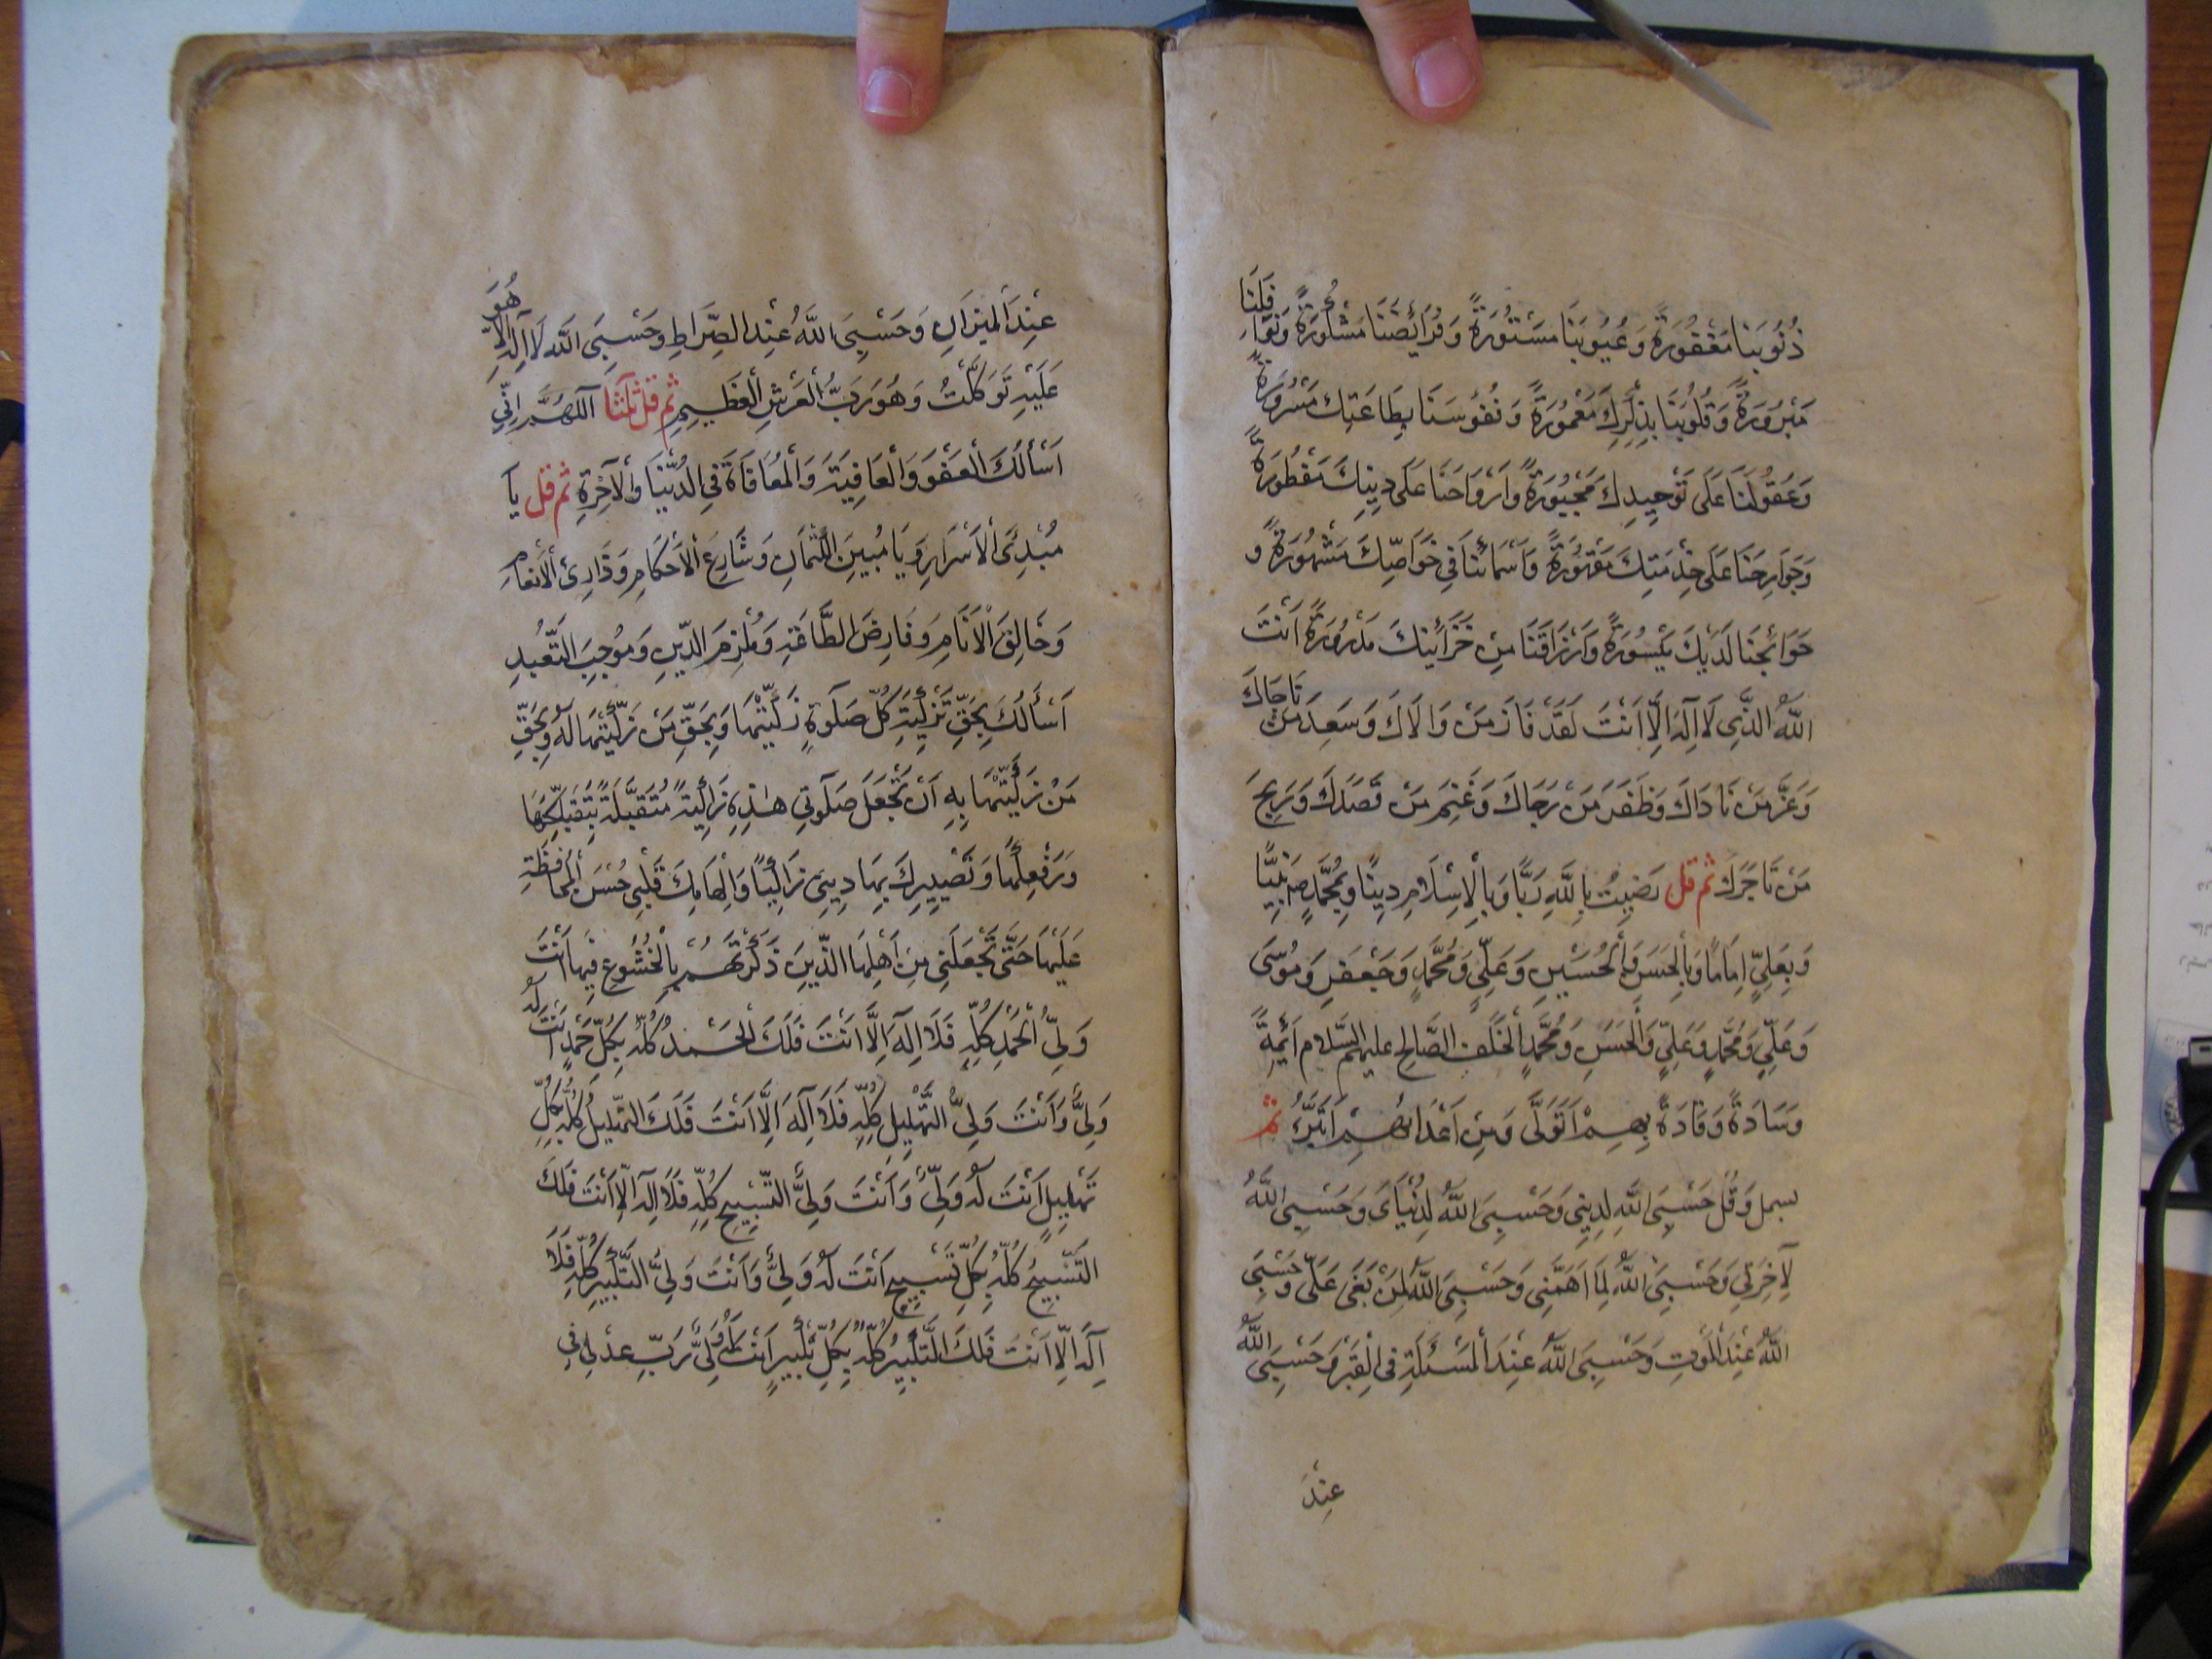 ذُنُوبَنَا مَغْفُورَةً وَعُيُوبَنَا مَسْتُورَةً وَفَرَائِضَنَا مَشْكُورَةً وَنَوَافِلَنَا
مَبْرُورَةً وَقُلُوبَنَا بِذِكْرِكَ مَعْمُورَةً وَنُفُوسَنَا بِطَاعَتِكَ مَسْرُورَةً
وَعُقُولَنَا عَلَى تَوْحِيدِكَ مَجْبُورَةً وَأَرْوَاحَنَا عَلَى دِينِكَ مَفْطُورَةً
وَجَوَارِحَنَا عَلَى خِذْمَتِكَ مَقْهُورَةً وَأَسْمَائَنَا فِي خَوَاصِّكَ مَشْهُورَةً وَ
حَوَائِجَنَا لَدَيْكَ مَيْسُورَةً وَأَرْزَاقَنَا مِنْ خَزَائِنِكَ مَدْرُورَةً أَنْتَ
اللّٰهُ الَّذِي لَا إِلَهَ إِلَّا أَنْتَ لَقَدْ فَازَ مَنْ وَالَاكَ وَسَعِدَ مَنْ نَاجَاكَ
وَعَزَّ مَنْ نَادَاكَ وَظَفَرَ مَنْ رَجَاكَ وَغَنِمَ مَنْ قَصَدَكَ وَرَبِحَ
مَنْ تَاجَرَكَ ثم قل رَضِيتُ بِاللَّهِ رَبًّا وَبِالْإِسْلَامِ دِينًا وَبِمُحَمَّدٍ ص نَبِيًّا
وَبِعَلِيٍّ إِمَامًا وَبِالْحَسَنِ وَالْحُسَيْنِ وَعَلِيٍّ وَمُحَمَّدٍ وَجَعْفَرٍ وَمُوسَى
وَعَلِيٍّ وَمُحَمَّدٍ وَعَلِيٍّ وَالْحَسَنِ وَمُحَمَّدٍ الْخَلَفِ الصَّالِحِ عليهم السَّلام أَئِمَّةً
وَسَادَةً وَقَادَةً بِهِمْ أَتَوَلَّى وَمِنْ أَعْدَائِهِمْ أَتَبَرَّءُ ثم
بسمل وَقُلْ حَسْبِيَ اللَّهُ لِدِينِي وَحَسْبِيَ اللَّهُ لِدُنْيَايَ وَحَسْبِيَ اللَّهُ
لِآخِرَتِي وَحَسْبِيَ اللَّهُ لِمَا أَهَمَّنِي وَحَسْبِيَ اللَّهُ لِمَنْ بَغَى عَلَيَّ وَحَسْبِيَ
اللَّهُ عِنْدَ الْمَوْتِ وَحَسْبِيَ اللَّهُ عِنْدَ الْمَسْئَلَةِ فِي الْقَبْرِ وَحَسْبِيَ اللَّهُ
عِنْدَ
عِنْدَ الْمِيزَانِ وَحَسْبِيَ اللَّهُ عِنْدَ الصِّرَاطِ وَحَسْبِيَ اللَّهُ لَا إِلَهَ إِلَّا هُوَ
عَلَيْهِ تَوَكَّلْتُ وَهُوَ رَبُّ الْعَرْشِ الْعَظِيمِ ثم قل ثلثا اللَّهُمَّ إِنِّي
أَسْأَلُكَ الْعَفْوَ وَالْعَافِيَةَ وَالْمُعَافَاةَ فِي الدُّنْيَا وَالْآخِرَةِ ثم قل يَا
مُبْدِئَ الْأَسْرَارِ وَيَا مُبِينَ الْكِتْمَانِ وَشَارِعَ الْأَحْكَامِ وَذَارِئَ الْأَنْعَامِ
وَخَالِقَ الْأَنَامِ وَفَارِضَ الطَّاعَةِ وَمُلْزِمَ الدِّينِ وَمُوجِبَ التَّعَبُّدِ
أَسْأَلُكَ بِحَقِّ تَزْكِيَةِ كُلِّ صَلَوةٍ زَكَّيْتَهَا وَبِحَقِّ مَنْ زَكَّيْتَهَا لَهُ وَبِحَقِّ
مَنْ زَكَّيْتَهَا بِهِ أَنْ تَجْعَلَ صَلَوتِي هٰذِهِ زَاكِيَةً مُتَقَبَّلَةً بِتَقَبُّلِكَهَا
وَرَفْعِكَهَا وَتَصْيِيرِكَ بِهَا دِينِي زَاكِيًا وَإِلْهَامِكَ قَلْبِي حُسْنَ الْمُحَافَظَةِ
عَلَيْهَا حَتَّى تَجْعَلَنِي مِنْ أَهْلِهَا الَّذِينَ ذَكَرْتَهُمْ بِالْخُشُوعِ فِيهَا أَنْتَ
وَلِيُّ الْحَمْدِ كُلِّهِ فَلَا إِلَهَ إِلَّا أَنْتَ فَلَكَ الْحَمْدُ كُلُّهُ بِكُلِّ حَمْدٍ أَنْتَ لَهُ
وَلِيٌّ وَأَنْتَ وَلِيُّ التَّهْلِيلِ كُلِّهِ فَلَا إِلَهَ إِلَّا أَنْتَ فَلَكَ التَّهْلِيلُ كُلُّهُ بِكُلِّ
تَهْلِيلٍ أَنْتَ لَهُ وَلِيٌّ وَأَنْتَ وَلِيُّ التَّسْبِيحِ كُلِّهِ فَلَا إِلَهَ إِلَّا أَنْتَ فَلَكَ
التَّسْبِيحُ كُلُّهُ بِكُلِّ تَسْبِيحٍ أَنْتَ لَهُ وَلِيٌّ وَأَنْتَ وَلِيُّ التَّكْبِيرِ كُلِّهِ فَلَا
إِلَهَ إِلَّا أَنْتَ فَلَكَ التَّكْبِيرُ كُلُّهُ بِكُلِّ تَكْبِيرٍ أَنْتَ لَهُ وَلِيٌّ رَبِّ عُدْ لِي فِي